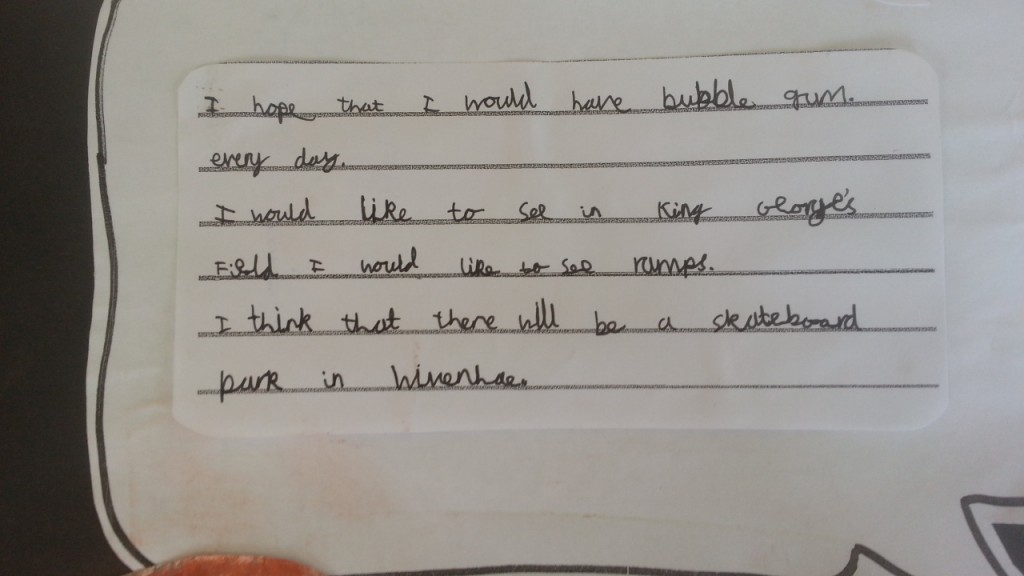 I hope that I would have bubble gum.
every day.
I would like to see in King George's
Field I would like to see ramps.
I think that there will be a skateboard
park in Wivenhoe.